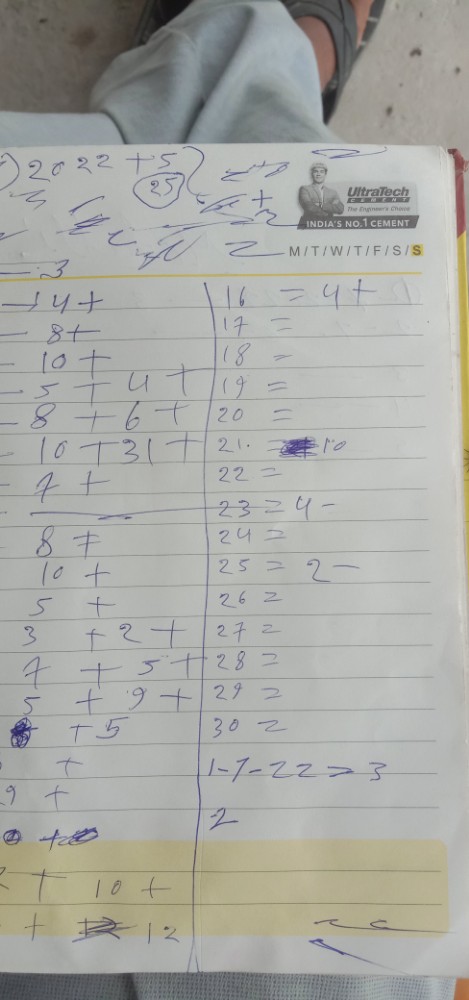 2022 + 5
25
UltraTech
CEMENT
The Engineer's Choice
INDIA'S NO.1 CEMENT
M/T/W/T/F/S/S
3
4 +
8 +
10 +
5 + 4 +
8 + 6 +
10 + 31 +
7 +
8 +
10 +
5 +
3 + 2 +
7 + 5 +
5 + 9 +
+ 5
+
9 +
+ 10 +
+ 12
16 = 4 +
17 =
18 =
19 =
20 =
21. 10
22 =
23 = 4 -
24 =
25 = 2 -
26 =
27 =
28 =
29 =
30 =
1-7-22 = 3
2